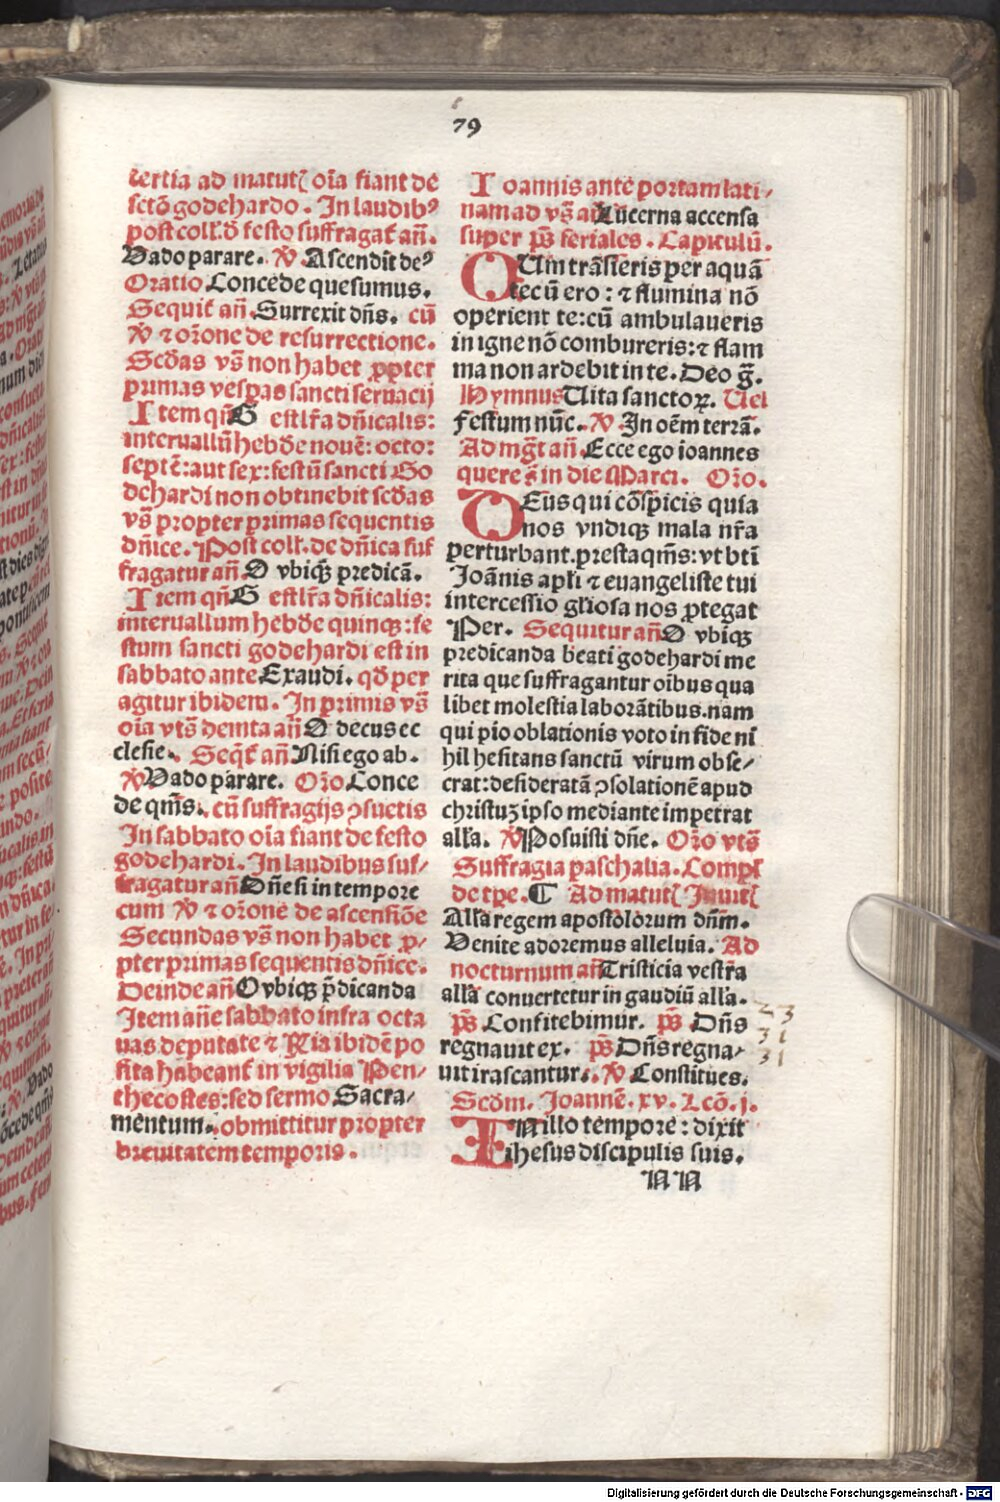 79
tertia ad matutꝭ oīa fiant de
sctō godehardo. In laudibꝰ
post coll. ō festo suffragat̄ an̄.
Vado parare. ℣ Ascendit deꝰ
Oratio Concede quesumus.
Sequit̄ an̄. Surrexit dn̄s. cū
℣ ⁊ orōne de resurrectione.
Scd̄as vs̄ non habet ꝓpter
primas vesꝑas sancti seruacij
Item qn̄ G est lr̄a dn̄icalis:
interuallū hebd̄e nouē: octo:
septē: aut sex: festū sancti Go
dehardi non obtinebit scd̄as
vs̄ propter primas sequentis
dn̄ice. Post coll. de dn̄ica suf
fragatur an̄. O vbiqꝫ predicā.
Item qn̄ G est lr̄a dn̄icalis:
interuallum hebd̄e quinqꝫ: fe
stum sancti godehardi est in
sabbato ante Exaudi. qd̄ per
agitur ibidem. In primis vs̄
oīa vts̄ demta an̄ O decus ec
clesie. Seqt̄ an̄ Nisi ego ab.
℣ Vado parare. Orō Conce
de qm̄s. cū suffragijs ꝯsuetis
In sabbato oīa fiant de festo
godehardi. In laudibus suf/
fragatur an̄ Dn̄e si in tempore
cum ℣ ⁊ orōne de ascensiōe
Secundas vs̄ non habet ꝓ/
pter primas sequentis dn̄ice.
Deinde an̄ O vbiqꝫ p̄dicanda
Item an̄e sabbato infra octa
uas deputate ⁊ Ria ibidē po
sita habeant̄ in vigilia Pen/
thecostes: sed sermo Sacra/
mentum. obmittitur propter
breuitatem temporis.
Ioannis ante portam lati/
nam ad vs̄ an̄ Lucerna accensa
super ps̄ feriales. Capitulū.
CUm trāsieris per aquā
tecū ero: ⁊ flumina nō
operient te: cū ambulaueris
in igne nō combureris: ⁊ flam
ma non ardebit in te. Deo ḡ.
Hymnus Uita sanctoꝝ. Uel
Festum nūc. ℣ In oēm terrā.
Ad mgt̄ an̄. Ecce ego ioannes
quere s̄ in die Marci. Orō.
DEus qui cōspicis quia
nos vndiqꝫ mala nr̄a
perturbant. presta qm̄s: vt btī
Joānis apl̄i ⁊ euangeliste tui
intercessio gl̄iosa nos ꝓtegat
Per. Sequitur an̄ O vbiqꝫ
predicanda beati godehardi me
rita que suffragantur oībus qua
libet molestia laborātibus. nam
qui pio oblationis voto in fide ni
hil hesitans sanctū virum obse/
crat: desideratā ꝯsolationē apud
christuꝫ ipso mediante impetrat
alla. ℣ Posuisti dn̄e. Orō vts̄
Suffragia paschalia. Compl̄
de tꝑe. ¶ Ad matutꝭ Inuitꝭ
Alla regem apostolorum dnm̄.
Venite adoremus alleluia. Ad
nocturnum an̄ Tristicia vestr̄a
alla conuertetur in gaudiū alla.
ps̄ Confitebimur. ps̄ Dn̄s
regnauit ex. ps̄ Dn̄s regna/
uit irascantur. ℣ Constitues.
Scdm̄. Joannē. xv. Lcō. j.
IN illo tempore: dixit
ihesus discipulis suis.
NN
23
31
31
Digitalisierung gefördert durch die Deutsche Forschungsgemeinschaft - DFG